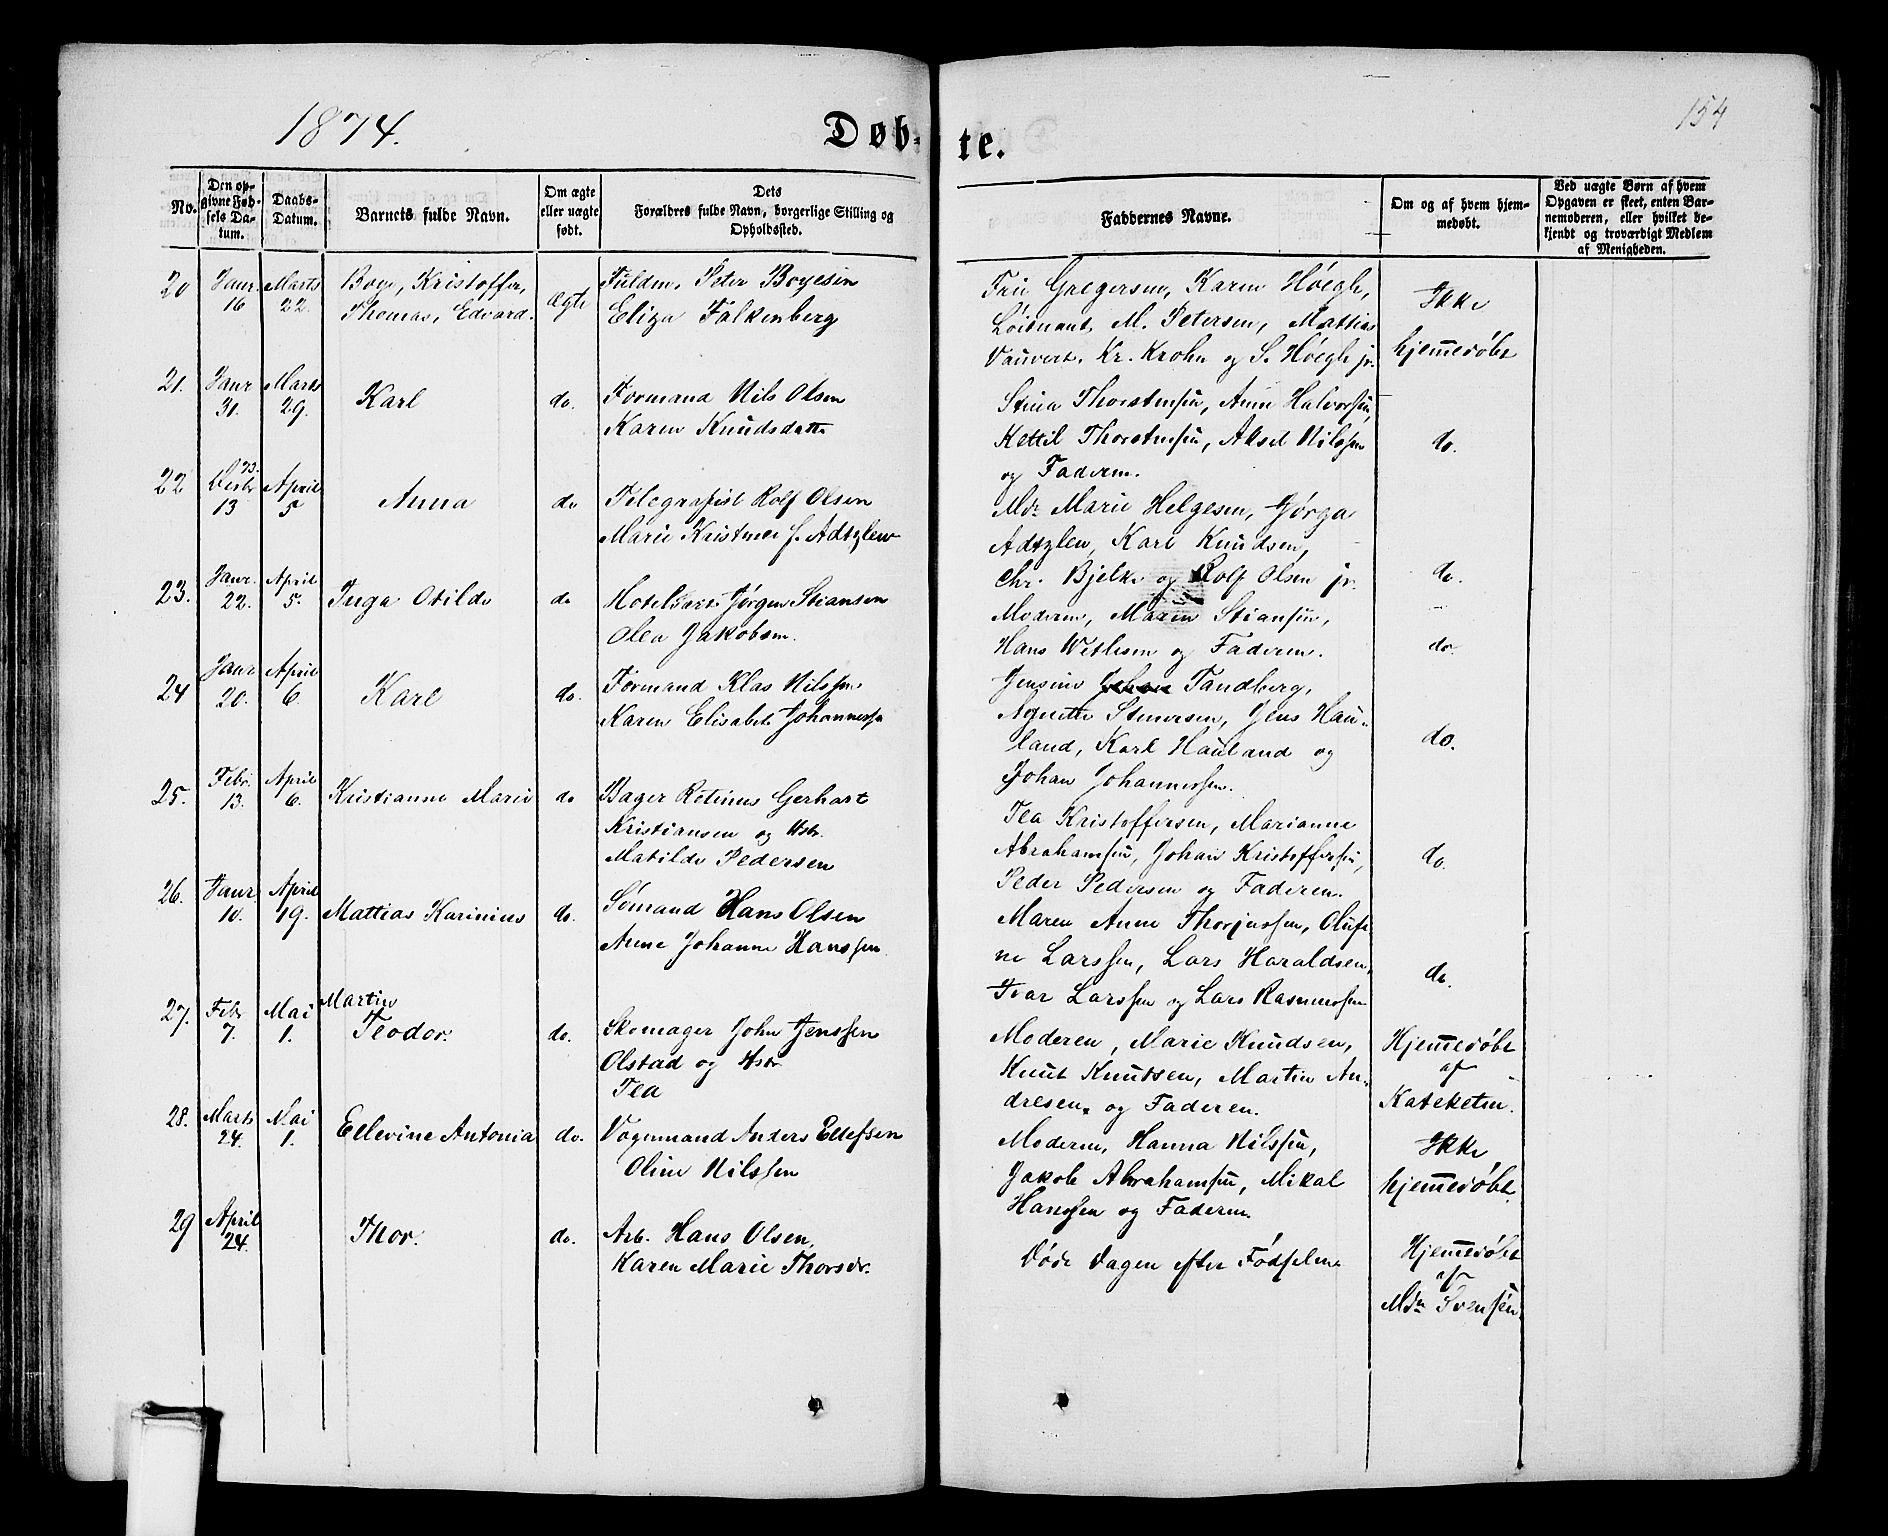 1874.
Døb-
te.
154
No.
Den op-
givne Fød-
sels Da-
tum.
Daabs-
Datum.
Barnets fulde Navn.
Om ægte
eller uægte
født.
Dets
Forældres fulde Navn, borgerlige Stilling og
Opholdssted.
Faddernes Navne.
Om og af hvem hjem-
medøbt.
Ved uægte Børn af hvem
Opgaven er skeet, enten Bar-
nemoderen, eller hvilket be-
kjendt og troværdigt Medlem
af Menigheden.
20
Janr.
16
Marts
22.
Kristoffer,
Thomas, Edvard.
Ægte
Fuldm. Peter Boyesen
Eliza Falkenberg
Fru Gregersen, Karen Höegh,
Löitnant M. Petersen, Mattias
Vauvert, Kr. Krohn og S. Höegh jr.
Ikke
hjemedøbt
21.
Janr
31.
Marts
29.
Karl
do.
Formand Nils Olsen
Karen Knudsdatt.
Stina Thorstensen, Anne Halvorsen,
Kettil Thorstensen, Aksel Nilssen
og Faderen.
do.
22
73.
Desbr
13
April
5
Anna
do
Telegrafist Rolf Olsen
Marie Kristine f. Adtzlew
Md. Marie Helgesen, Gjörga
Adtzlew, Karl Knudsen,
Chr. Bjelke og Rolf Olsen jr.
do.
23.
Janr.
22.
April
5.
Inga Otilde
do
Hotelvært Jørgen Stiansen
Olea Jakobsen.
Moderen, Maren Stiansen,
Hans Wetlesen og Faderen.
do.
24
Janr
20.
April
6.
Karl
do.
Formand Klas Nilssen
Karen Elisabet Johannessen
Jensine Johan Tandberg,
Agnette Stenersen, Jens Hau-
land, Karl Hauland og
Johan Johannessen.
do.
25.
Febr.
13.
April
6.
Kristianne Marie
do
Bager Retinus Gerhart
Kristiansen og Hstr.
Matilde Pedersen
Tea Kristoffersen, Marianne
Abrahamsen, Johan Kristoffersen,
Peder Pedersen og Faderen.
do.
26.
Janr.
10.
April
19.
Mattias Karinius
do.
Sømand Hans Olsen
Anne Johanne Hanssen
Maren Anne Thorjussen, Olufi-
ne Larssen, Lars Haraldsen,
Ivar Larssen og Lars Rasmussen
do.
27.
Febr
7.
Mai
1.
Martin
Teodor.
do.
Skomager John Jenssen
Olstad og Hstr
Tea
Moderen, Marie Knudsen,
Knut Knutsen, Martin An-
dresen og Faderen.
Hjemedøbt
af
Kateketen.
28.
Marts
24.
Mai
1.
Ellevine Antonia
do.
Vognmand Anders Ellefsen
Oline Nilssen
Moderen, Hanna Nilssen,
Jakob Abrahamsen, Mikal
Hanssen og Faderen.
Ikke
hjemedøbt.
29
April
24.
Thor.
do.
Arb. Hans Olsen,
Karen Marie Thorsdr.
Døde Dagen efter Fødselen
Hjemedøbt
af
Mdm Svensen.